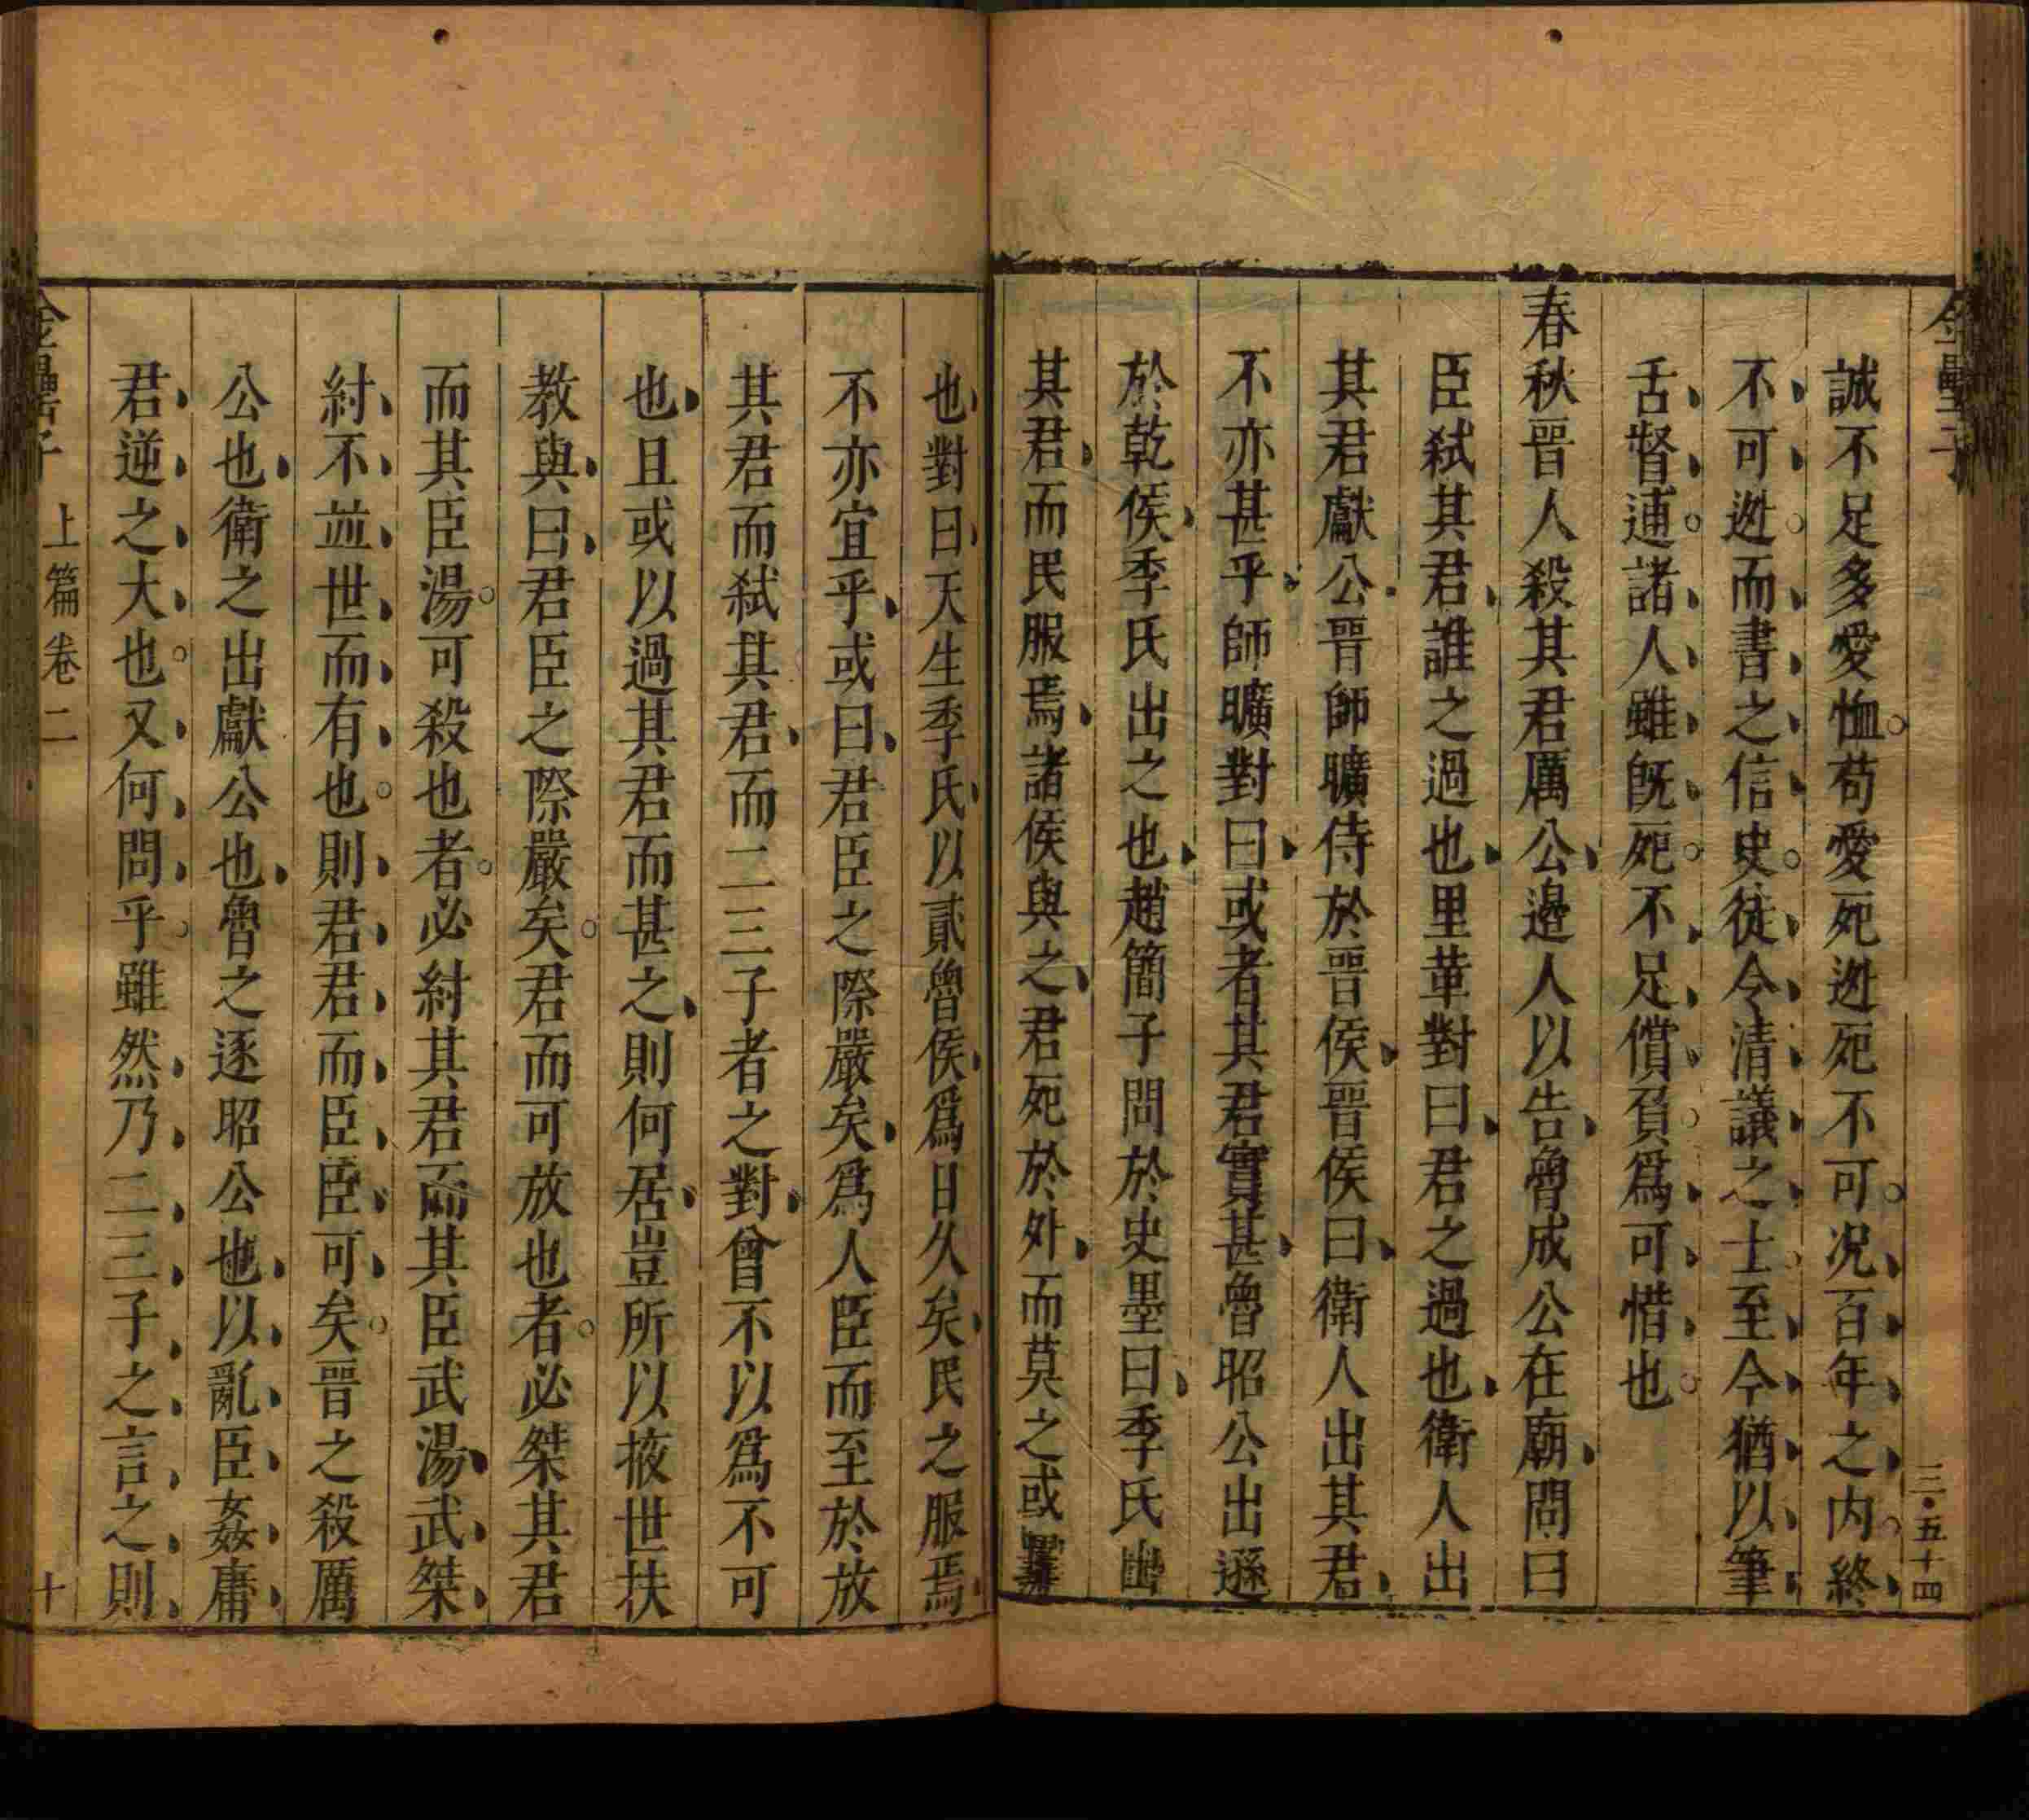 金罍子
三・五十四
誠不足多愛恤。苟愛死逃死不可。况百年之内。終
不可逃。而書之信史。徒令清議之士。至今猶以筆
舌督逋。諸人雖既死。不足償負。爲可惜也。
春秋晉人殺其君厲公、邉人以告、魯成公在廟、問曰
臣弑其君、誰之過也、里革對曰、君之過也、衛人出
其君獻公、晉師曠侍於晉侯、晉侯曰、衛人出其君、
不亦甚乎、師曠對曰、或者其君實甚、魯昭公出遜
於乾侯、季氏出之也、趙簡子問於史墨曰、季氏出
其君、而民服焉、諸侯與之、君死於外、而莫之或罪
也、對曰、天生季氏、以貳魯侯、爲日久矣、民之服焉、
不亦宜乎、或曰、君臣之際嚴矣、爲人臣而至於放
其君而弑其君、而二三子者之對、曾不以爲不可
也、且或以過其君而甚之、則何居、豈所以掖世扶
教與、曰、君臣之際嚴矣。君而可放也者。必桀其君
而其臣湯。可殺也者。必紂其君而其臣武、湯、武、桀、
紂、不、並、世、而、有、也。則、君、君、而、臣、臣、可、矣。晉之殺厲
公也、衛之出獻公也、魯之逐昭公也、以、亂、臣、姦、庸、
君、逆、之、大、也。又、何、問、乎。雖然、乃、二、三、子、之、言、之、則、
金罍子
上篇卷二
十